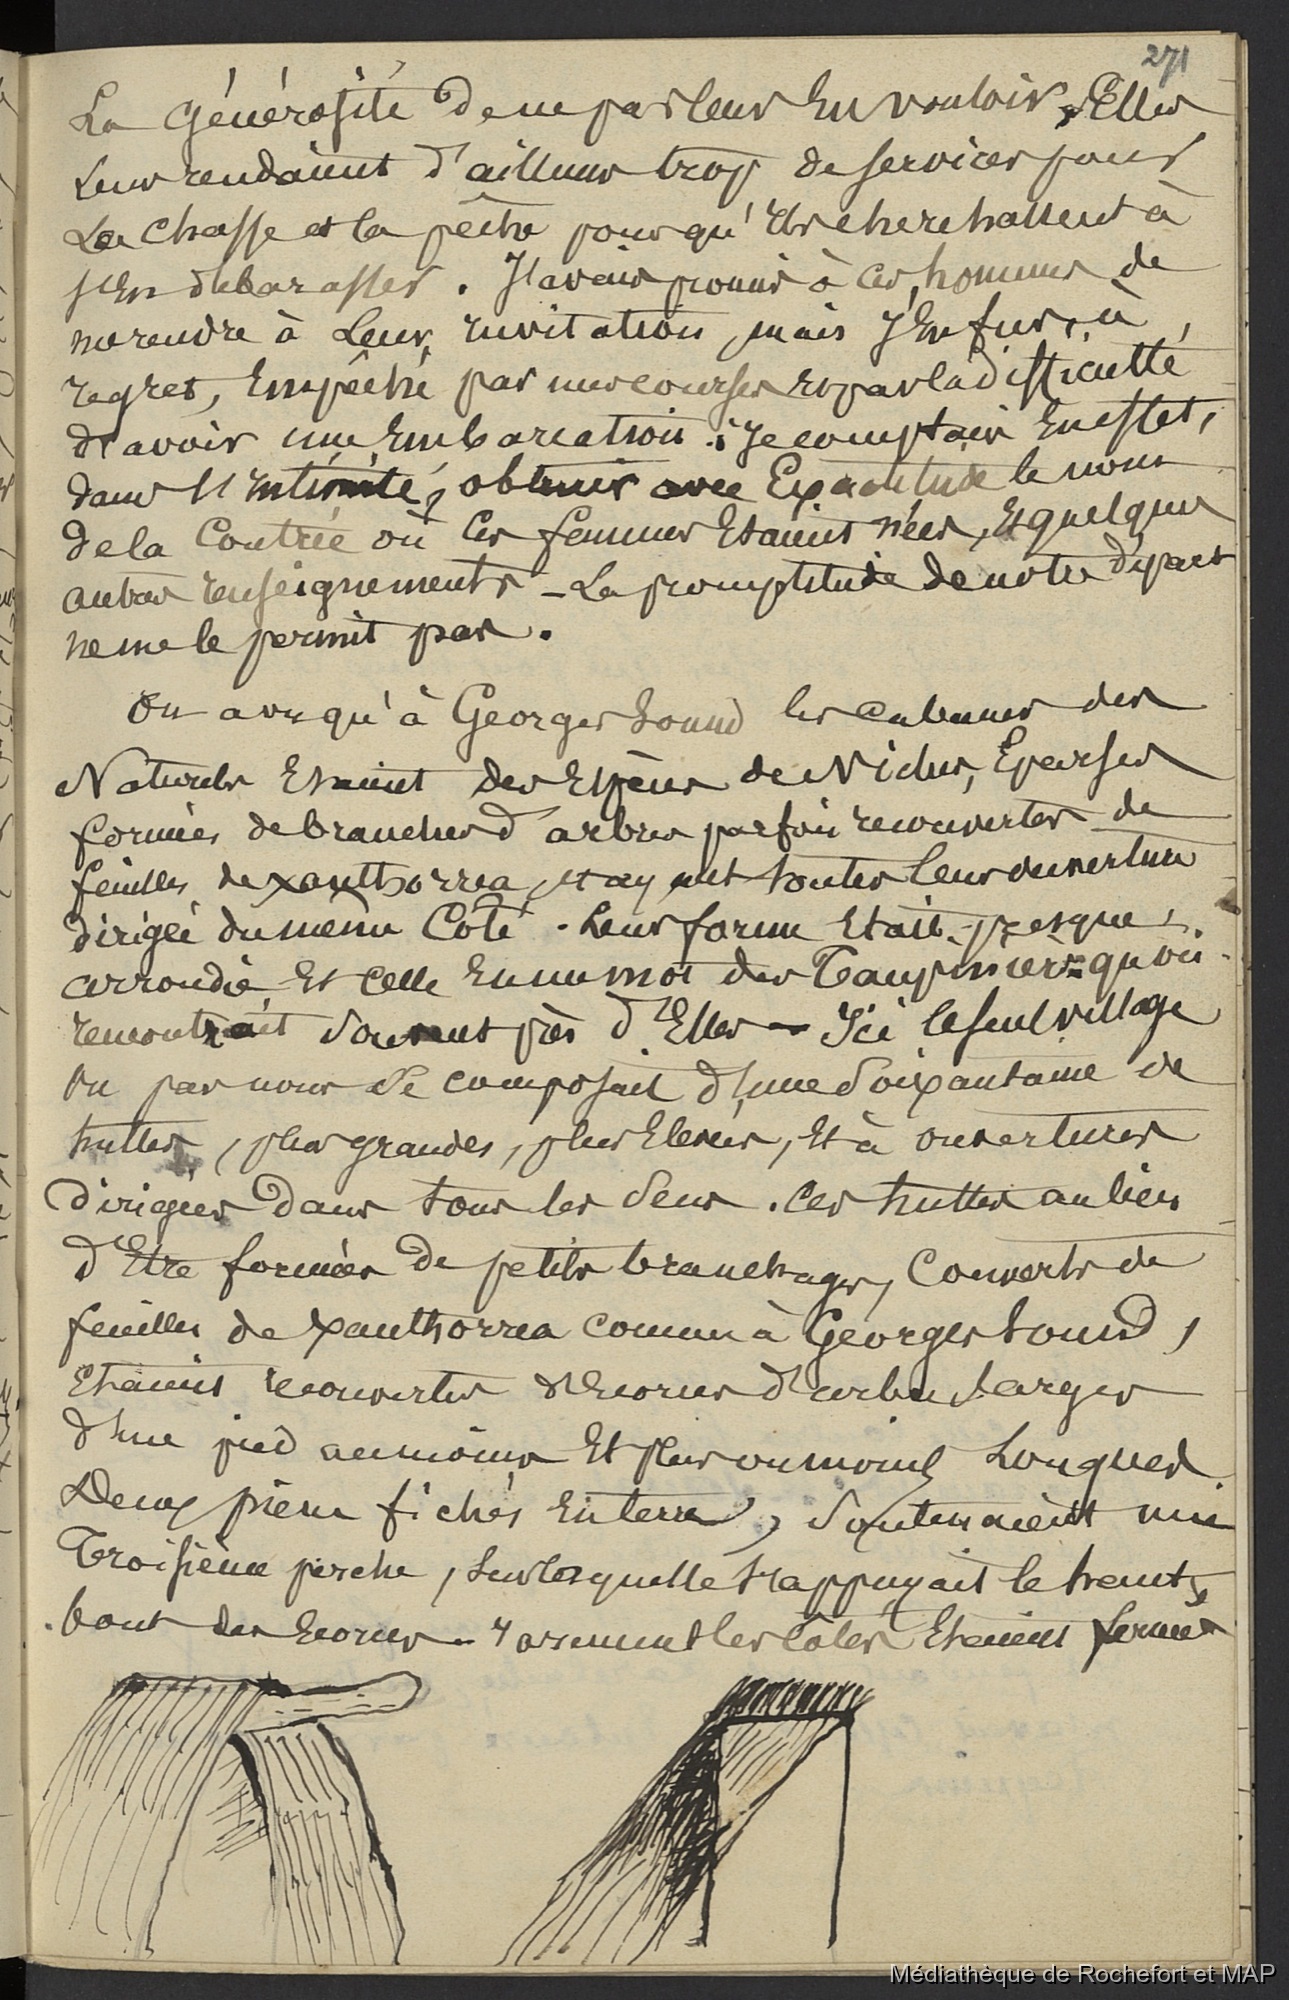 271
La générosité de ne pas leur En vouloir. Elles
Leur rendaient d'ailleurs trop de services pour
La chasse et la pêche pour qu'ils cherchassent à
s'En débarasser. J'avais promis à ces hommes de
me rendre à Leur invitation, mais j'En fus, à
regret, Empêché par mes courses et par la difficulté
d'avoir une Embarcation. Je comptais En effet,
dans l'intimité, obtenir avec Exactitude le nom
de la Contrée où Ces femmes Etaient nées, Et quelques
autres renseignements - La promptitude de notre départ
ne me le permit pas.
On a vu qu'à Georges Sound les cabanes des
Naturels Etaient des Espèces de Niches, Eparses
formées de branches d'arbres parfois recouvertes de
feuilles de xanthorrea, et ayant toutes leur ouverture
dirigée du même Côté. Leur forme Etait presque
arrondie, Et celle En un mot des Taupinières qu'on
rencontrait souvent près d'Elles - Ici le seul village
vu par nous se composait d'une soixantaine de
huttes, plus grandes, plus Elevées, Et à ouvertures
dirigées dans tous les sens. Ces huttes au lieu
d'Etre formées de petits branchages, Couverts de
feuilles de xanthorrea comme à Georges Sound,
Etaient recouvertes d'Ecorces d'arbre Larges
d'un pied au moins Et plus ou moins Longues
Deux pieux fichés En terre, soutenaient une
Troisième perche, sur laquelle s'appuyait le haut
bout des Ecorces - rarement les côtés Etaient fermés
Médiathèque de Rochefort et MAP